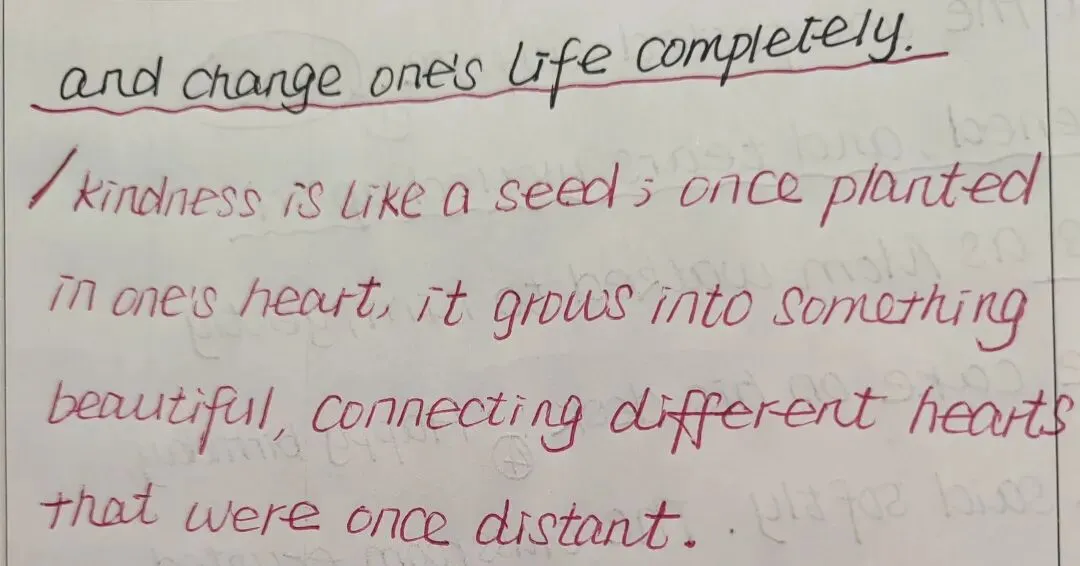 and change one's life completely.
/ kindness is like a seed; once planted
in one's heart, it grows into something
beautiful, connecting different hearts
that were once distant.